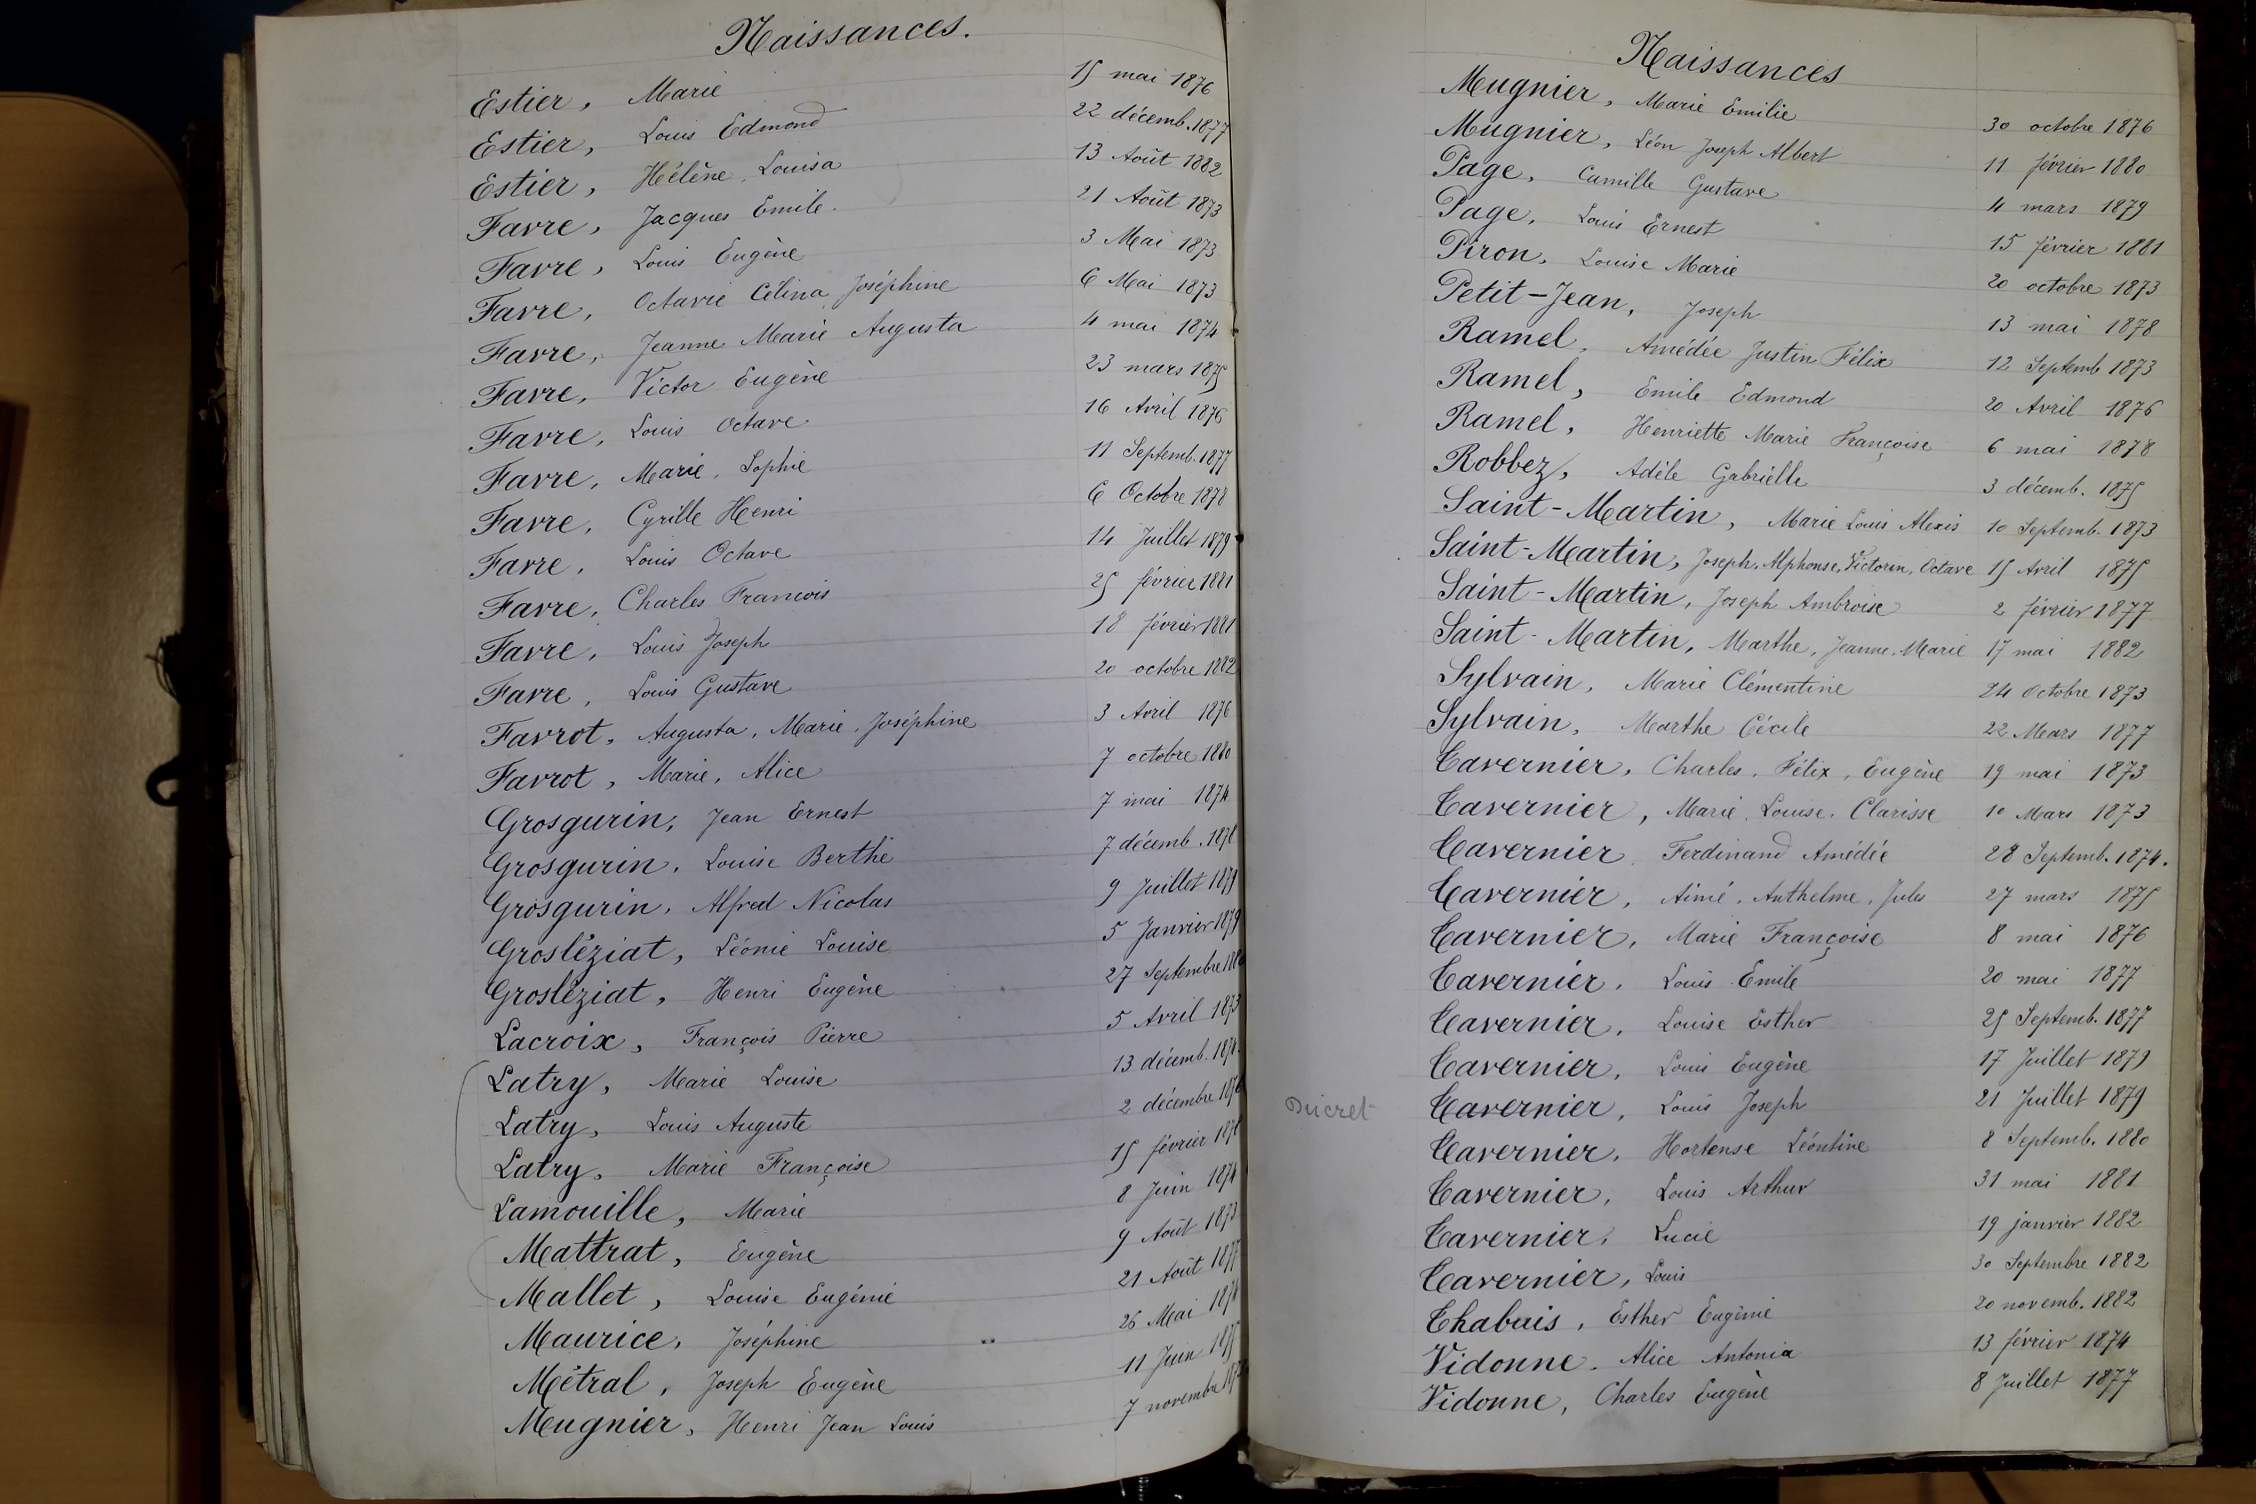 Naissances.
Estier, Marie 15 mai 1876
Estier, Louis Edmond 22 décemb. 1877
Estier, Hélène, Louisa 13 Août 1882
Favre, Jacques Emile. 21 Août 1873
Favre, Louis Eugène 3 Mai 1873
Favre, Octavie Célina Joséphine 6 Mai 1873
Favre, Jeanne Marie Augusta 4 mai 1874
Favre, Victor Eugène 23 mars 1875
Favre, Louis Octave 16 Avril 1876
Favre, Marie, Sophie 11 Septemb. 1877
Favre, Cyrille Henri 6 Octobre 1878
Favre, Louis Octave 14 Juillet 1879
Favre, Charles Francois 25 février 1881
Favre, Louis Joseph 18 février 1881
Favre, Louis Gustave 20 octobre 1882
Favrot, Augusta, Marie, Joséphine 3 Avril 1876
Favrot, Marie, Alice 7 octobre 1880
Grosgurin, Jean Ernest 7 mai 1874
Grosgurin, Louise Berthe 7 décemb. 1878
Grosgurin, Alfred Nicolas 9 Juillet 1879
Grosléziat, Léonie Louise 5 Janvier 1879
Grosléziat, Henri Eugène 27 Septembre 1880
Lacroix, François Pierre 5 Avril 1873
Latry, Marie Louise 13 décemb. 1874
Latry, Louis Auguste 2 décembre 1876
Latry, Marie Françoise 15 février 1878
Lamouille, Marie 8 Juin 1874
Mattrat, Eugène 9 Août 1873
Mallet, Louise Eugénie 21 Août 1877
Maurice, Joséphine 26 Mai 1878
Métral, Joseph Eugène 11 Juin 1875
Mugnier, Henri Jean Louis 7 novembre
Naissances
Mugnier, Marie Emilie 30 octobre 1876
Mugnier, Léon Joseph Albert 11 février 1880
Page, Camille Gustave 4 mars 1879
Page, Louis Ernest 15 février 1881
Piron, Louise Marie 20 octobre 1873
Petit-Jean, Joseph 13 mai 1878
Ramel, Amédée Justin Félix 12 Septemb 1873
Ramel, Emile Edmond 20 Avril 1876
Ramel, Henriette Marie Françoise 6 mai 1878
Robbez, Adèle Gabrielle 3 décemb. 1875
Saint-Martin, Marie Louis Alexis 10 Septemb. 1873
Saint-Martin, Joseph, Alphonse, Victorin, Octave 15 Avril 1875
Saint-Martin, Joseph Ambroise 2 février 1877
Saint-Martin, Marthe, Jeanne, Marie 17 mai 1882
Sylvain, Marie Clémentine 24 Octobre 1873
Sylvain, Marthe Cécile 22 Mars 1877
Tavernier, Charles, Félix, Eugène 19 mai 1873
Tavernier, Marie, Louise, Clarisse 10 Mars 1873
Tavernier, Ferdinand Amédée 28 Septemb. 1874.
Tavernier, Aimé, Anthelme, Jules 27 mars 1875
Tavernier, Marie Françoise 8 mai 1876
Tavernier, Louis Emile 20 mai 1877
Tavernier, Louise Esther 25 Septemb. 1877
Tavernier, Louis Eugène 17 Juillet 1879
Ducret Tavernier, Louis Joseph 21 Juillet 1879
Tavernier, Hortense Léontine 8 Septemb. 1880
Tavernier, Louis Arthur 31 mai 1881
Tavernier, Lucie 19 janvier 1882
Tavernier, Louis 30 Septembre 1882
Thabuis, Esther Eugénie 20 novemb. 1882
Vidonne, Alice Antonia 13 février 1874
Vidonne, Charles Eugène 8 Juillet 1877